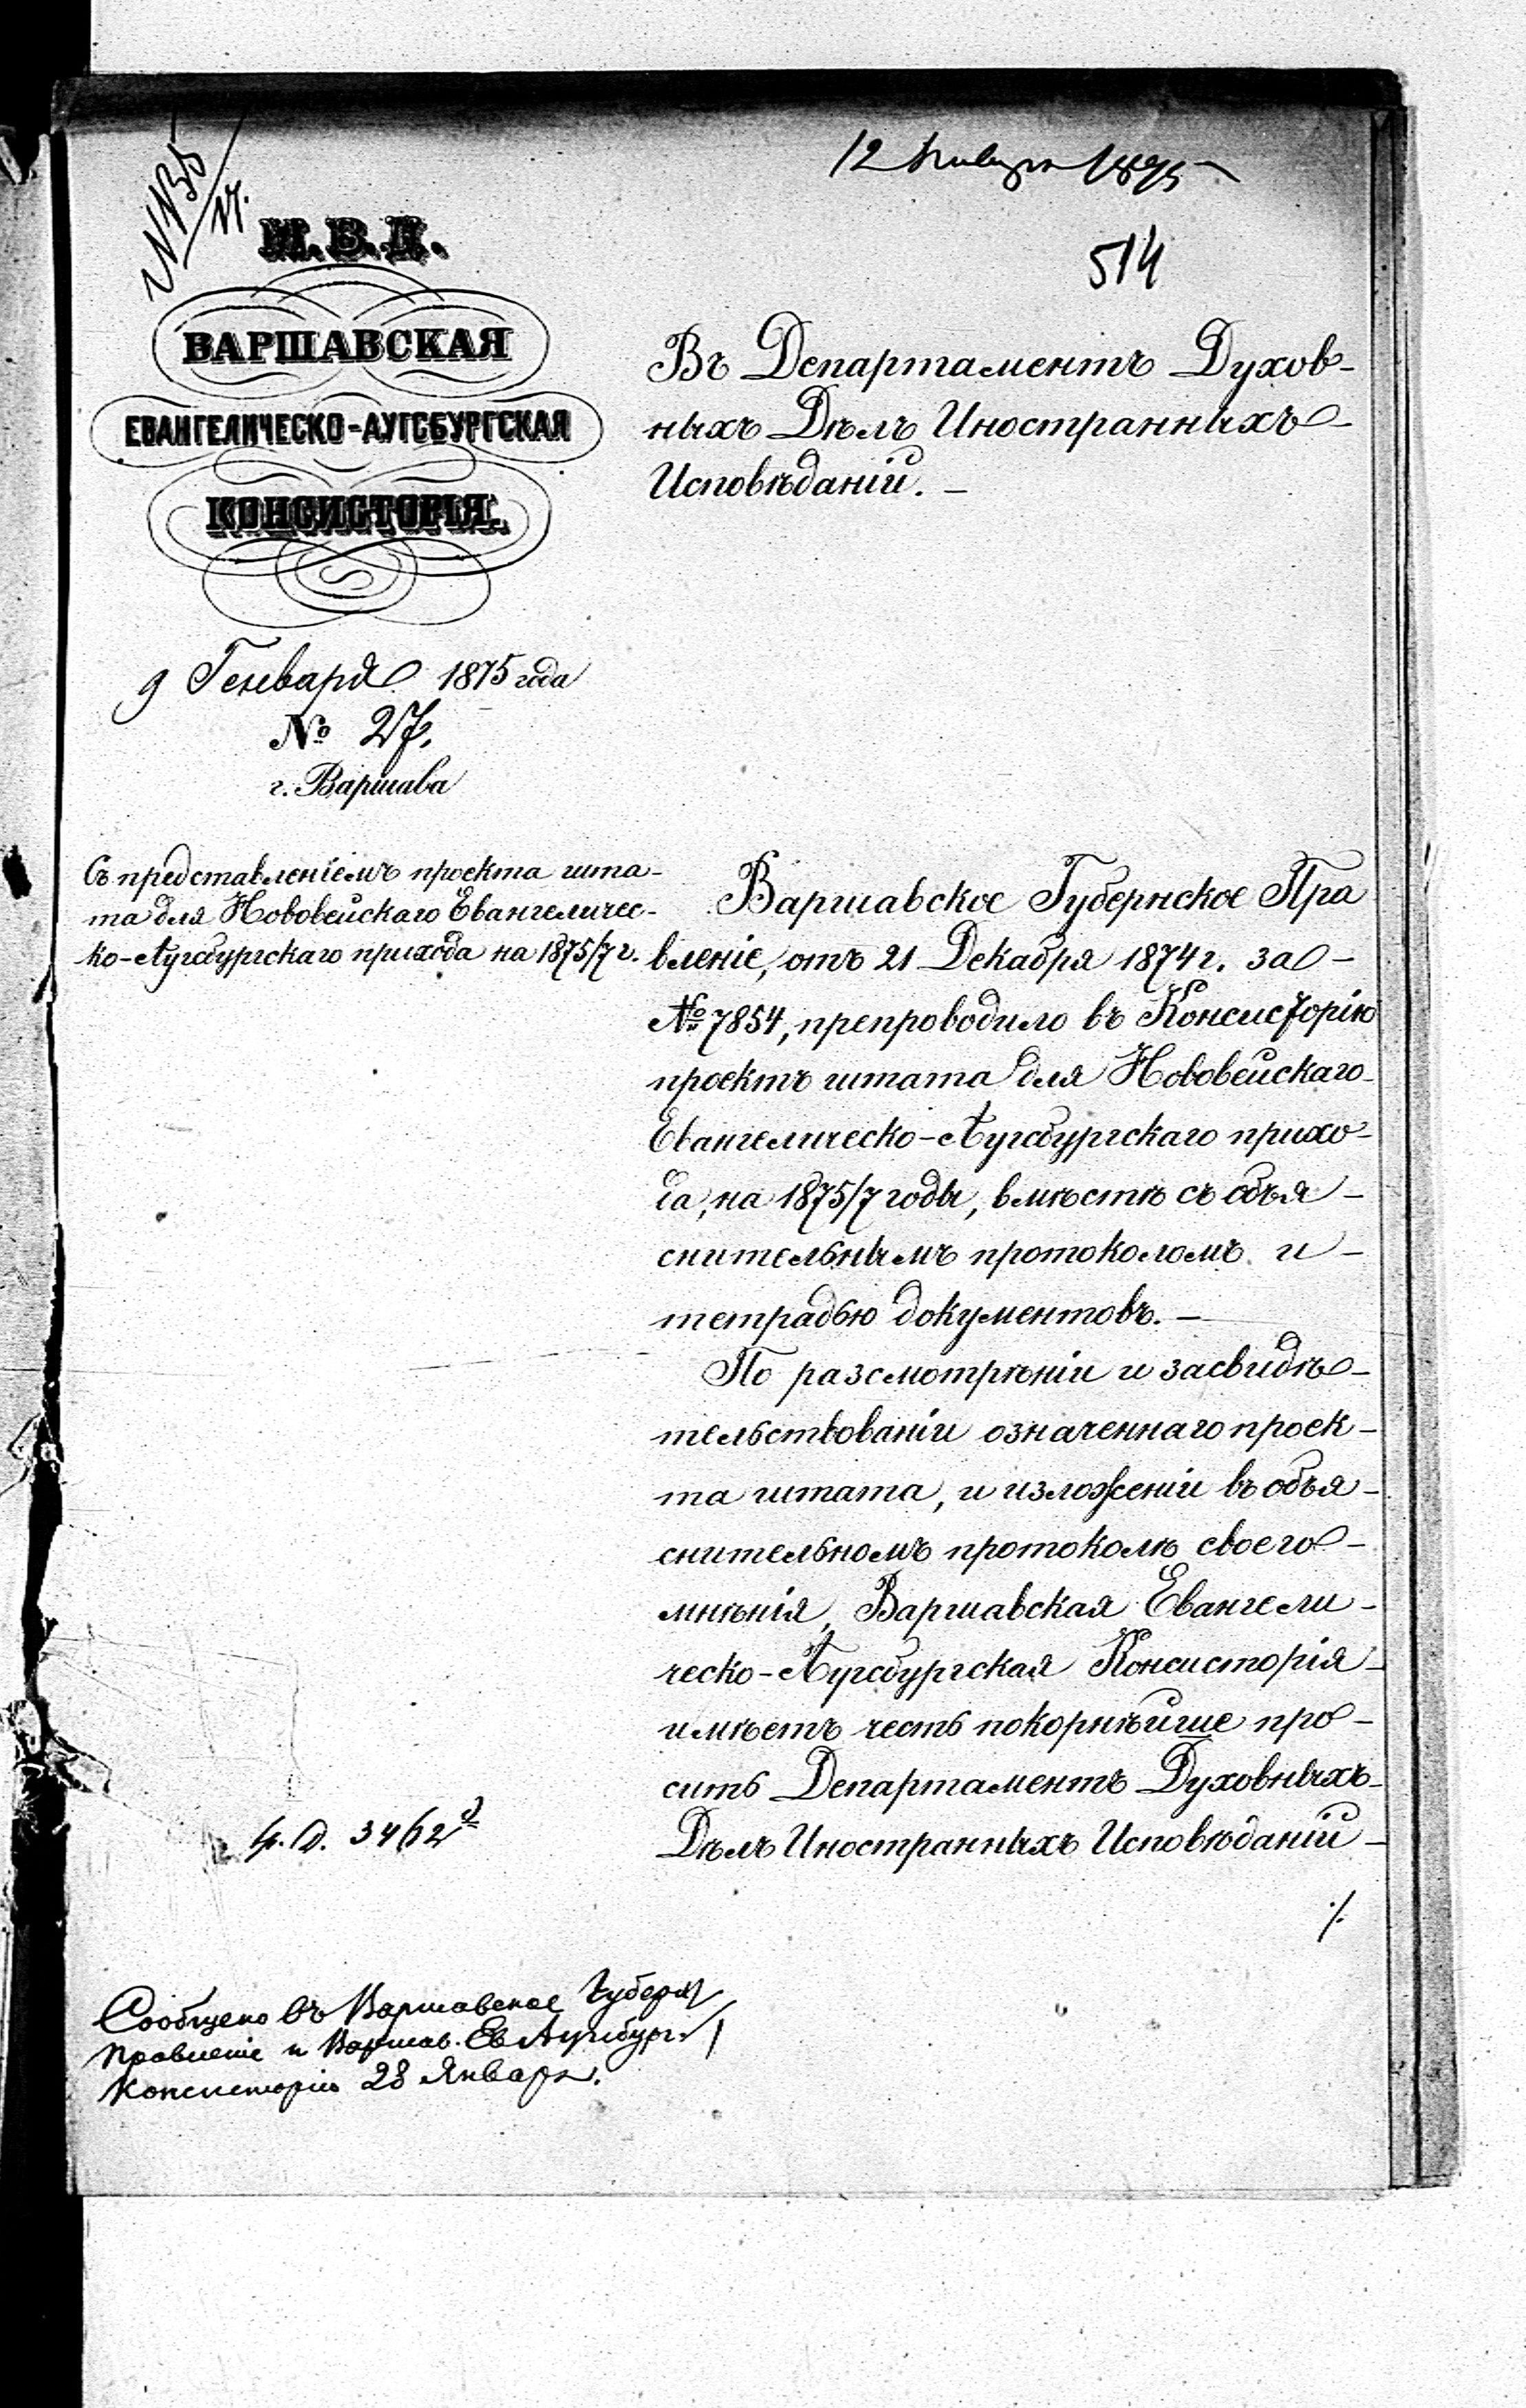 12 Января 1875
514
М.В.Д.
ВАРШАВСКАЯ
ЕВАНГЕЛИЧЕСКО-АУГСБУРГСКАЯ
КОНСИСТОРІЯ.
9 Генваря 1875 года
№ 27.
г. Варшава
Съ представленіемъ проекта шта-
та для Нововейскаго Евангеличес-
ко-Аугсбургскаго прихода на 1875/7 г.
Въ Департаментъ Духов-
ныхъ Дѣлъ Иностранныхъ
Исповѣданій. –
Варшавское Губернское Пра
вленіе, отъ 21 Декабря 1874 г. за –
№ 7854, препроводило въ Консисторію
проектъ штата для Нововейскаго
Евангелическо-Аугсбургскаго прихо-
да, на 1875/7 годы, вмѣстѣ съ объя-
снительнымъ протоколомъ и –
тетрадью документовъ. –
По разсмотрѣніи и засвидѣ-
тельствованіи означеннаго проек-
та штата, и изложеніи въ объя-
снительномъ протоколѣ своего –
мнѣнія, Варшавская Евангели-
ческо-Аугсбургская Консисторія
имѣетъ честь покорнѣйше про-
сить Департаментъ Духовныхъ
Дѣлъ Иностранныхъ Исповѣданій –
./.
3462
Сообщено въ Варшавское Губерн.
Правленіе и Варшав. Ев Аугсбург.
Консисторію 28 Января.